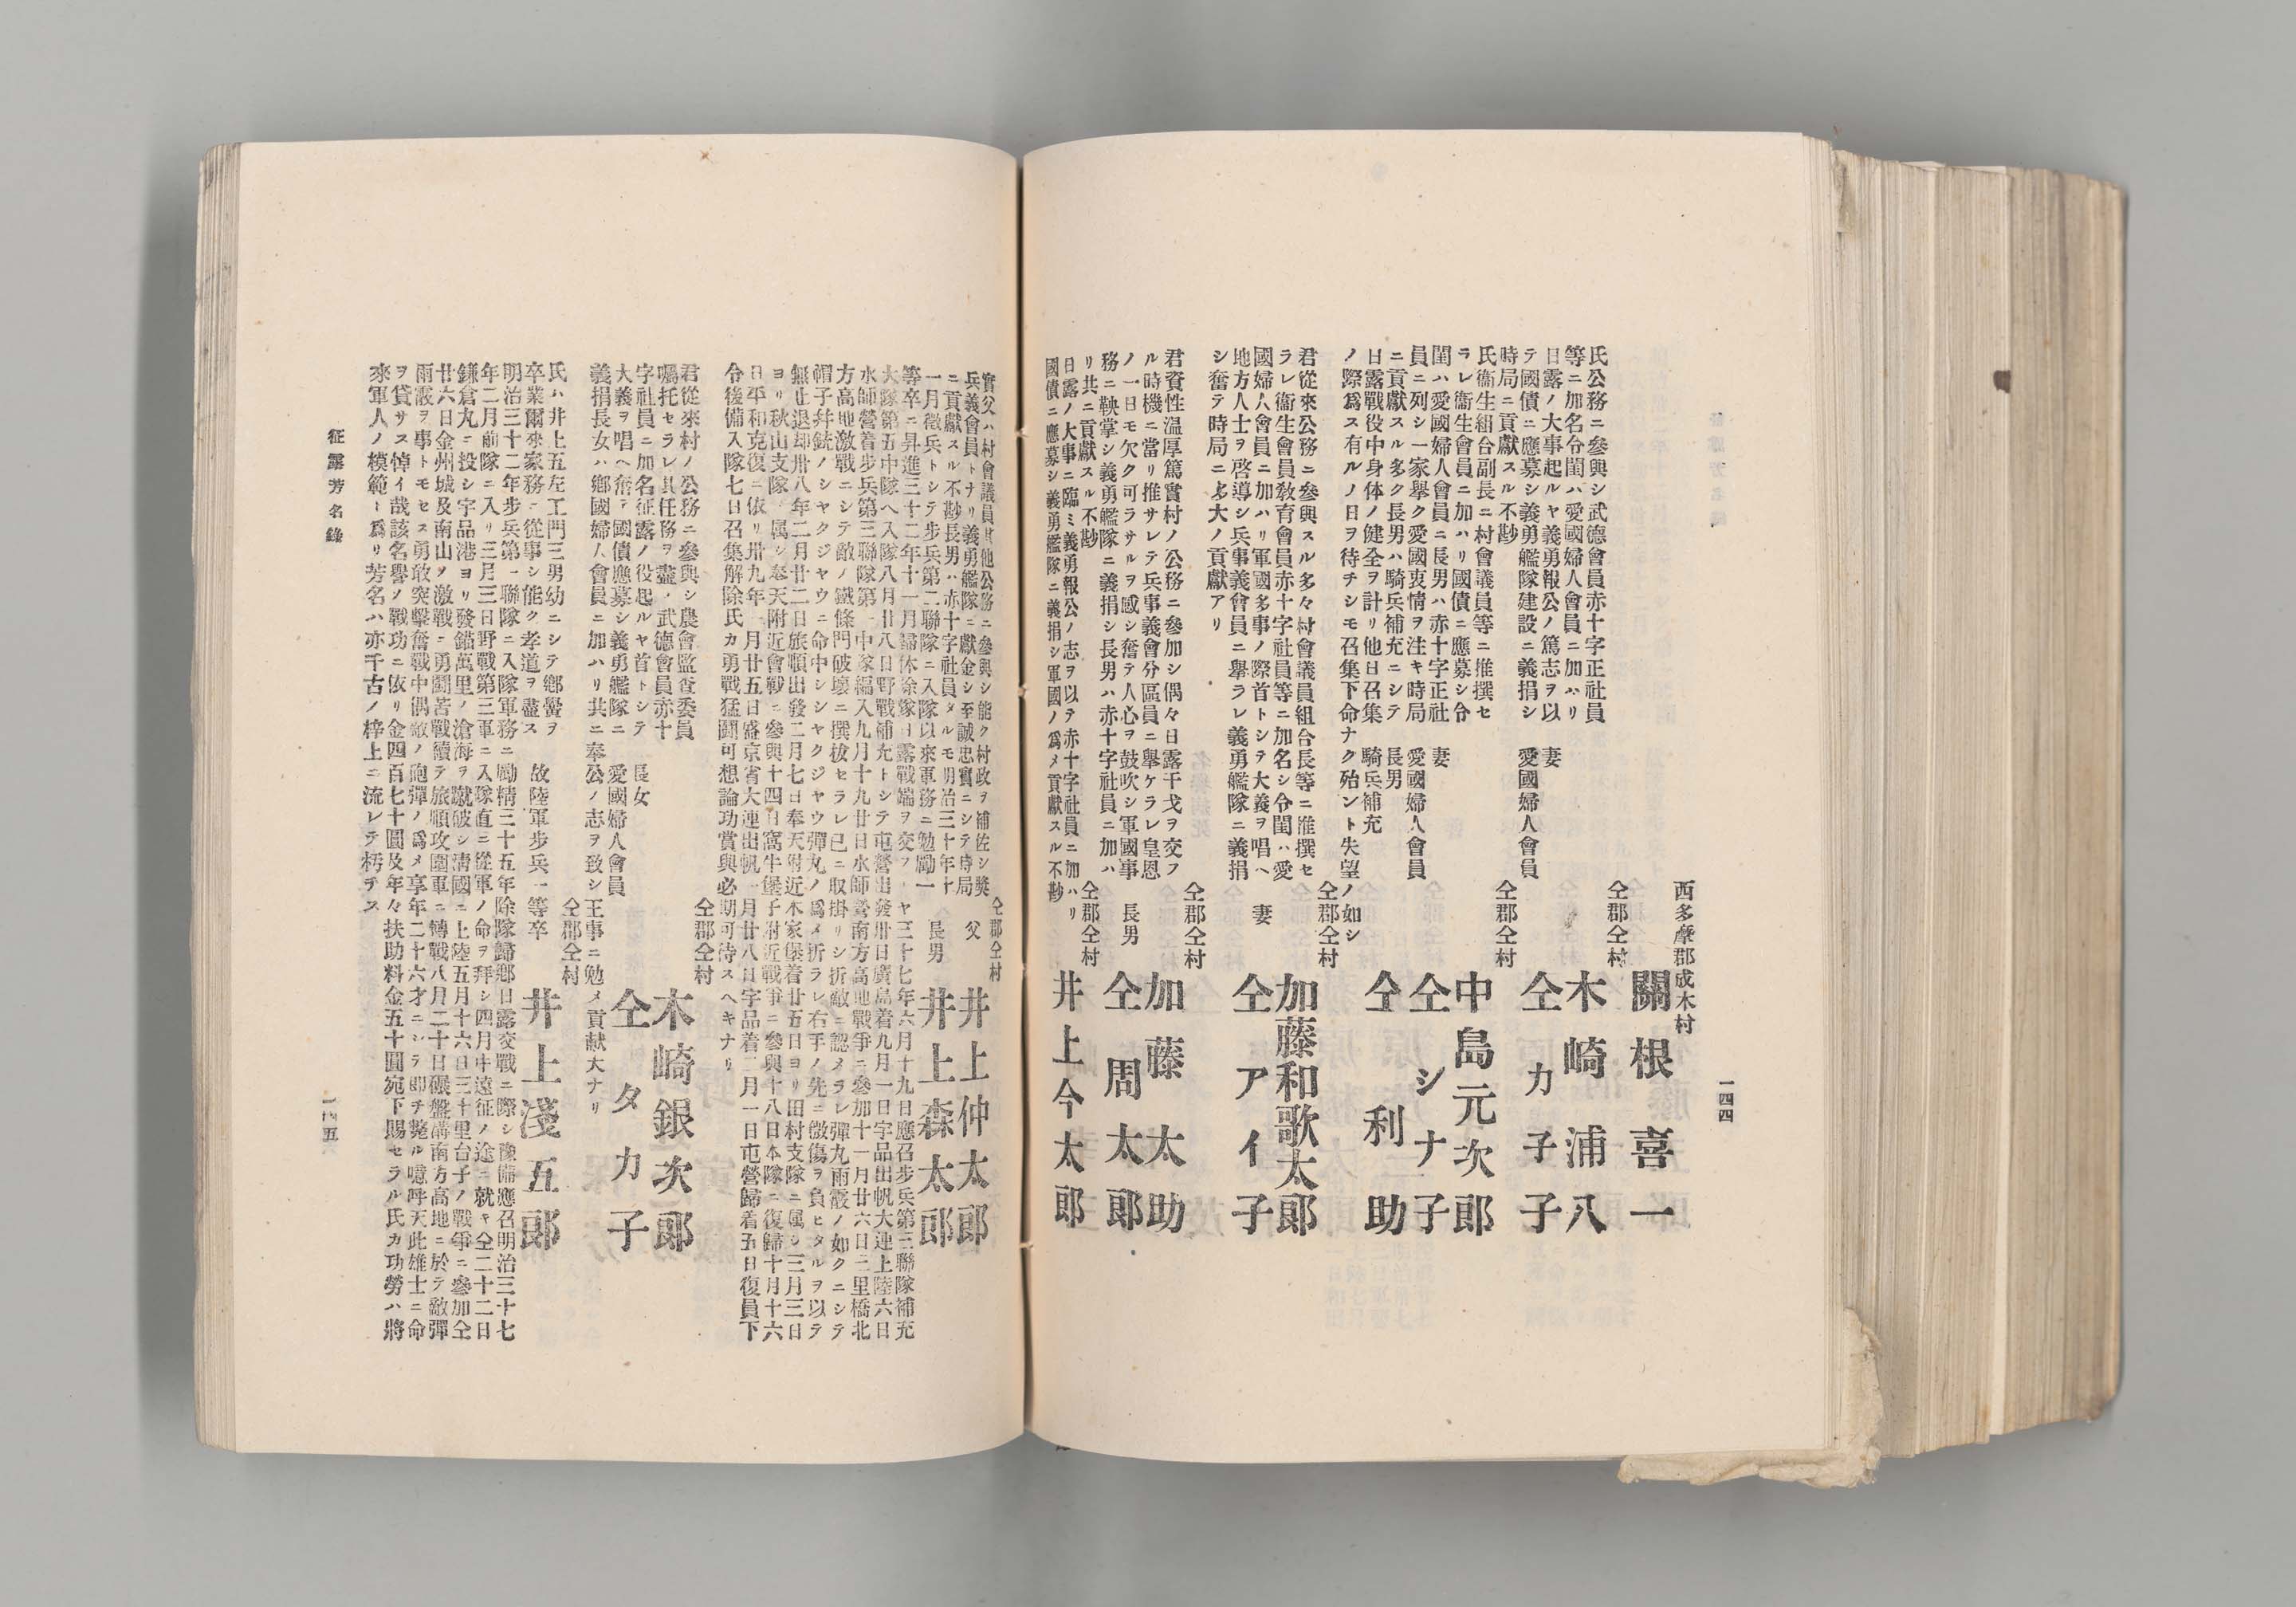 一四四
西多摩郡成木村
關根喜一
仝郡仝村
木崎浦八
妻
愛國婦人會員
仝カ子子
氏公務ニ參與シ武德會員赤十字正社員
等ニ加名令閨ハ愛國婦人會員ニ加ハリ
日露ノ大事起ルヤ義勇報公ノ篤志ヲ以
テ國債ニ應募シ義勇艦隊建設ニ義捐シ
時局ニ貢獻スル不尠
仝郡仝村
中島元次郎
妻
愛國婦人會員
仝シナ子
長男
騎兵補充
仝利助
氏衞生組合副長ニ村會議員等ニ推撰セ
ラレ衞生會員ニ加ハリ國債ニ應募シ令
閨ハ愛國婦人會員ニ長男ハ赤十字正社
員ニ列シ一家擧ク愛國衷情ヲ注キ時局
ニ貢獻スル多ク長男ハ騎兵補充ニシテ
日露戰役中身体ノ健全ヲ計リ他日召集
ノ際爲ス有ルノ日ヲ待チシモ召集下命ナク殆ント失望ノ如シ
仝郡仝村
加藤和歌太郎
妻
仝アイ子
君從來公務ニ參與スル多々村會議員組合長等ニ推撰セ
ラレ衞生會員教育會員赤十字社員等ニ加名シ令閨ハ愛
國婦人會員ニ加ハリ軍國多事ノ際首トシテ大義ヲ唱ヘ
地方人士ヲ啓導シ兵事義會員ニ擧ラレ義勇艦隊ニ義捐
シ奮テ時局ニ多大ノ貢獻アリ
仝郡仝村
加藤太助
長男
仝周太郎
君資性溫厚篤實村ノ公務ニ參加シ偶々日露干戈ヲ交フ
ル時機ニ當リ推サレテ兵事義會分區員ニ擧ケラレ皇恩
ノ一日モ欠ク可ラサルヲ感シ奮テ人心ヲ鼓吹シ軍國事
務ニ鞅掌シ義勇艦隊ニ義捐シ長男ハ赤十字社員ニ加ハ
リ共ニ貢獻スル不尠
仝郡仝村
井上今太郎
日露ノ大事ニ臨ミ義勇報公ノ志ヲ以テ赤十字社員ニ加ハリ
國債ニ應募シ義勇艦隊ニ義捐シ軍國ノ爲メ貢獻スル不尠
仝郡仝村
父
井上仲太郎
長男
井上森太郎
實父ハ村會議員其他公務ニ參與シ能ク村政ヲ補佐シ獎
兵義會員トナリ義勇艦隊ニ獻金シ至誠忠實ニシテ時局
ニ貢獻スル不尠長男ハ赤十字社員タルモ明治三十年十
一月徵兵トシテ步兵第二聯隊ニ入隊以來軍務ニ勉勵一
等卒ニ昇進三十二年十一月歸休除隊日露戰端ヲ交フルヤ三十七年六月十九日應召步兵第三聯隊補充
大隊第五中隊ヘ入隊八月廿八日野戰補充トシテ屯營出發卅日廣島着九月一日宇品出帆大連上陸六日
水師營着步兵第三聯隊第一中隊編入九月十九廿日水師營南方高地戰爭ニ參加十一月廿六日二里橋北
方高地激戰ニシテ敵ノ鐵條門破壞ニ撰拔セラレ已ニ取掛リシ折敵ニ認メラレ彈丸雨霰ノ如クニシテ
帽子幷銃ノシヤクジヤウニ命中シシヤクジヤウ彈丸ノ爲メ折ラレ右手ノ先ニ微傷ヲ負ヒタルヲ以テ
無止退却卅八年二月廿二日旅順出發二月七日奉天附近木家堡着廿五日ヨリ田村支隊ニ属シ三月三日
ヨリ秋山支隊ニ属シ奉天附近會戰ニ參與十四日窩牛堡子附近戰爭ニ參與十八日本隊ニ復歸十月十六
日平和克復ニ依リ卅九年一月廿五日盛京省大連出帆一月廿八日宇品着二月一日屯營歸着五日復員下
令後備入隊七日召集解除氏カ勇戰猛鬪可想論功賞與必期可待スヘキナリ
仝郡仝村
木崎銀次郎
長女
愛國婦人會員
仝タカ子
君從來村ノ公務ニ參與シ農會監査委員
囑托セラレ其任務ヲ盡ス武德會員赤十
字社員ニ加名征露ノ役起ルヤ首トシテ
大義ヲ唱ヘ奮テ國債應募シ義勇艦隊ニ
義捐長女ハ鄉國婦人會員ニ加ハリ共ニ奉公ノ志ヲ致シ王事ニ勉メ貢献大ナリ
仝郡仝村
故陸軍步兵一等卒
井上淺五郎
氏ハ井上五左エ門三男幼ニシテ鄉黌ヲ
卒業爾來家務ニ從事シ能ク孝道ヲ盡ス
明治三十二年步兵第一聯隊ニ入隊軍務ニ勵精三十五年除隊歸鄉日露交戰ニ際シ豫備應召明治三十七
年二月前隊ニ入リ三月三日野戰第三軍ニ入隊直ニ從軍ノ命ヲ拜シ四月中遠征ノ途ニ就キ仝二十二日
鎌倉丸ニ投シ宇品港ヨリ發錨萬里ノ滄海ヲ蹴破シ淸國ニ上陸五月十六日三十里台子ノ戰爭ニ參加仝
廿六日金州城及南山ヲ激戰ニ勇鬪苦戰續テ旅順攻圍軍ニ轉戰八月二十日碾盤溝南方高地ニ於テ敵彈
雨霰ヲ事トモセス勇敢突擊奮戰中偶敵ノ砲彈ノ爲メ享年二十六才ニシテ即チ斃ル噫呼天此雄士ニ命
ヲ貸サス悼イ哉該名譽ノ戰功ニ依リ金四百七十圓及年々扶助料金五十圓宛下賜セラル氏カ功勞ハ將
來軍人ノ模範ト爲リ芳名ハ亦千古ノ梓上ニ流レテ朽チス
征露芳名錄
一四五